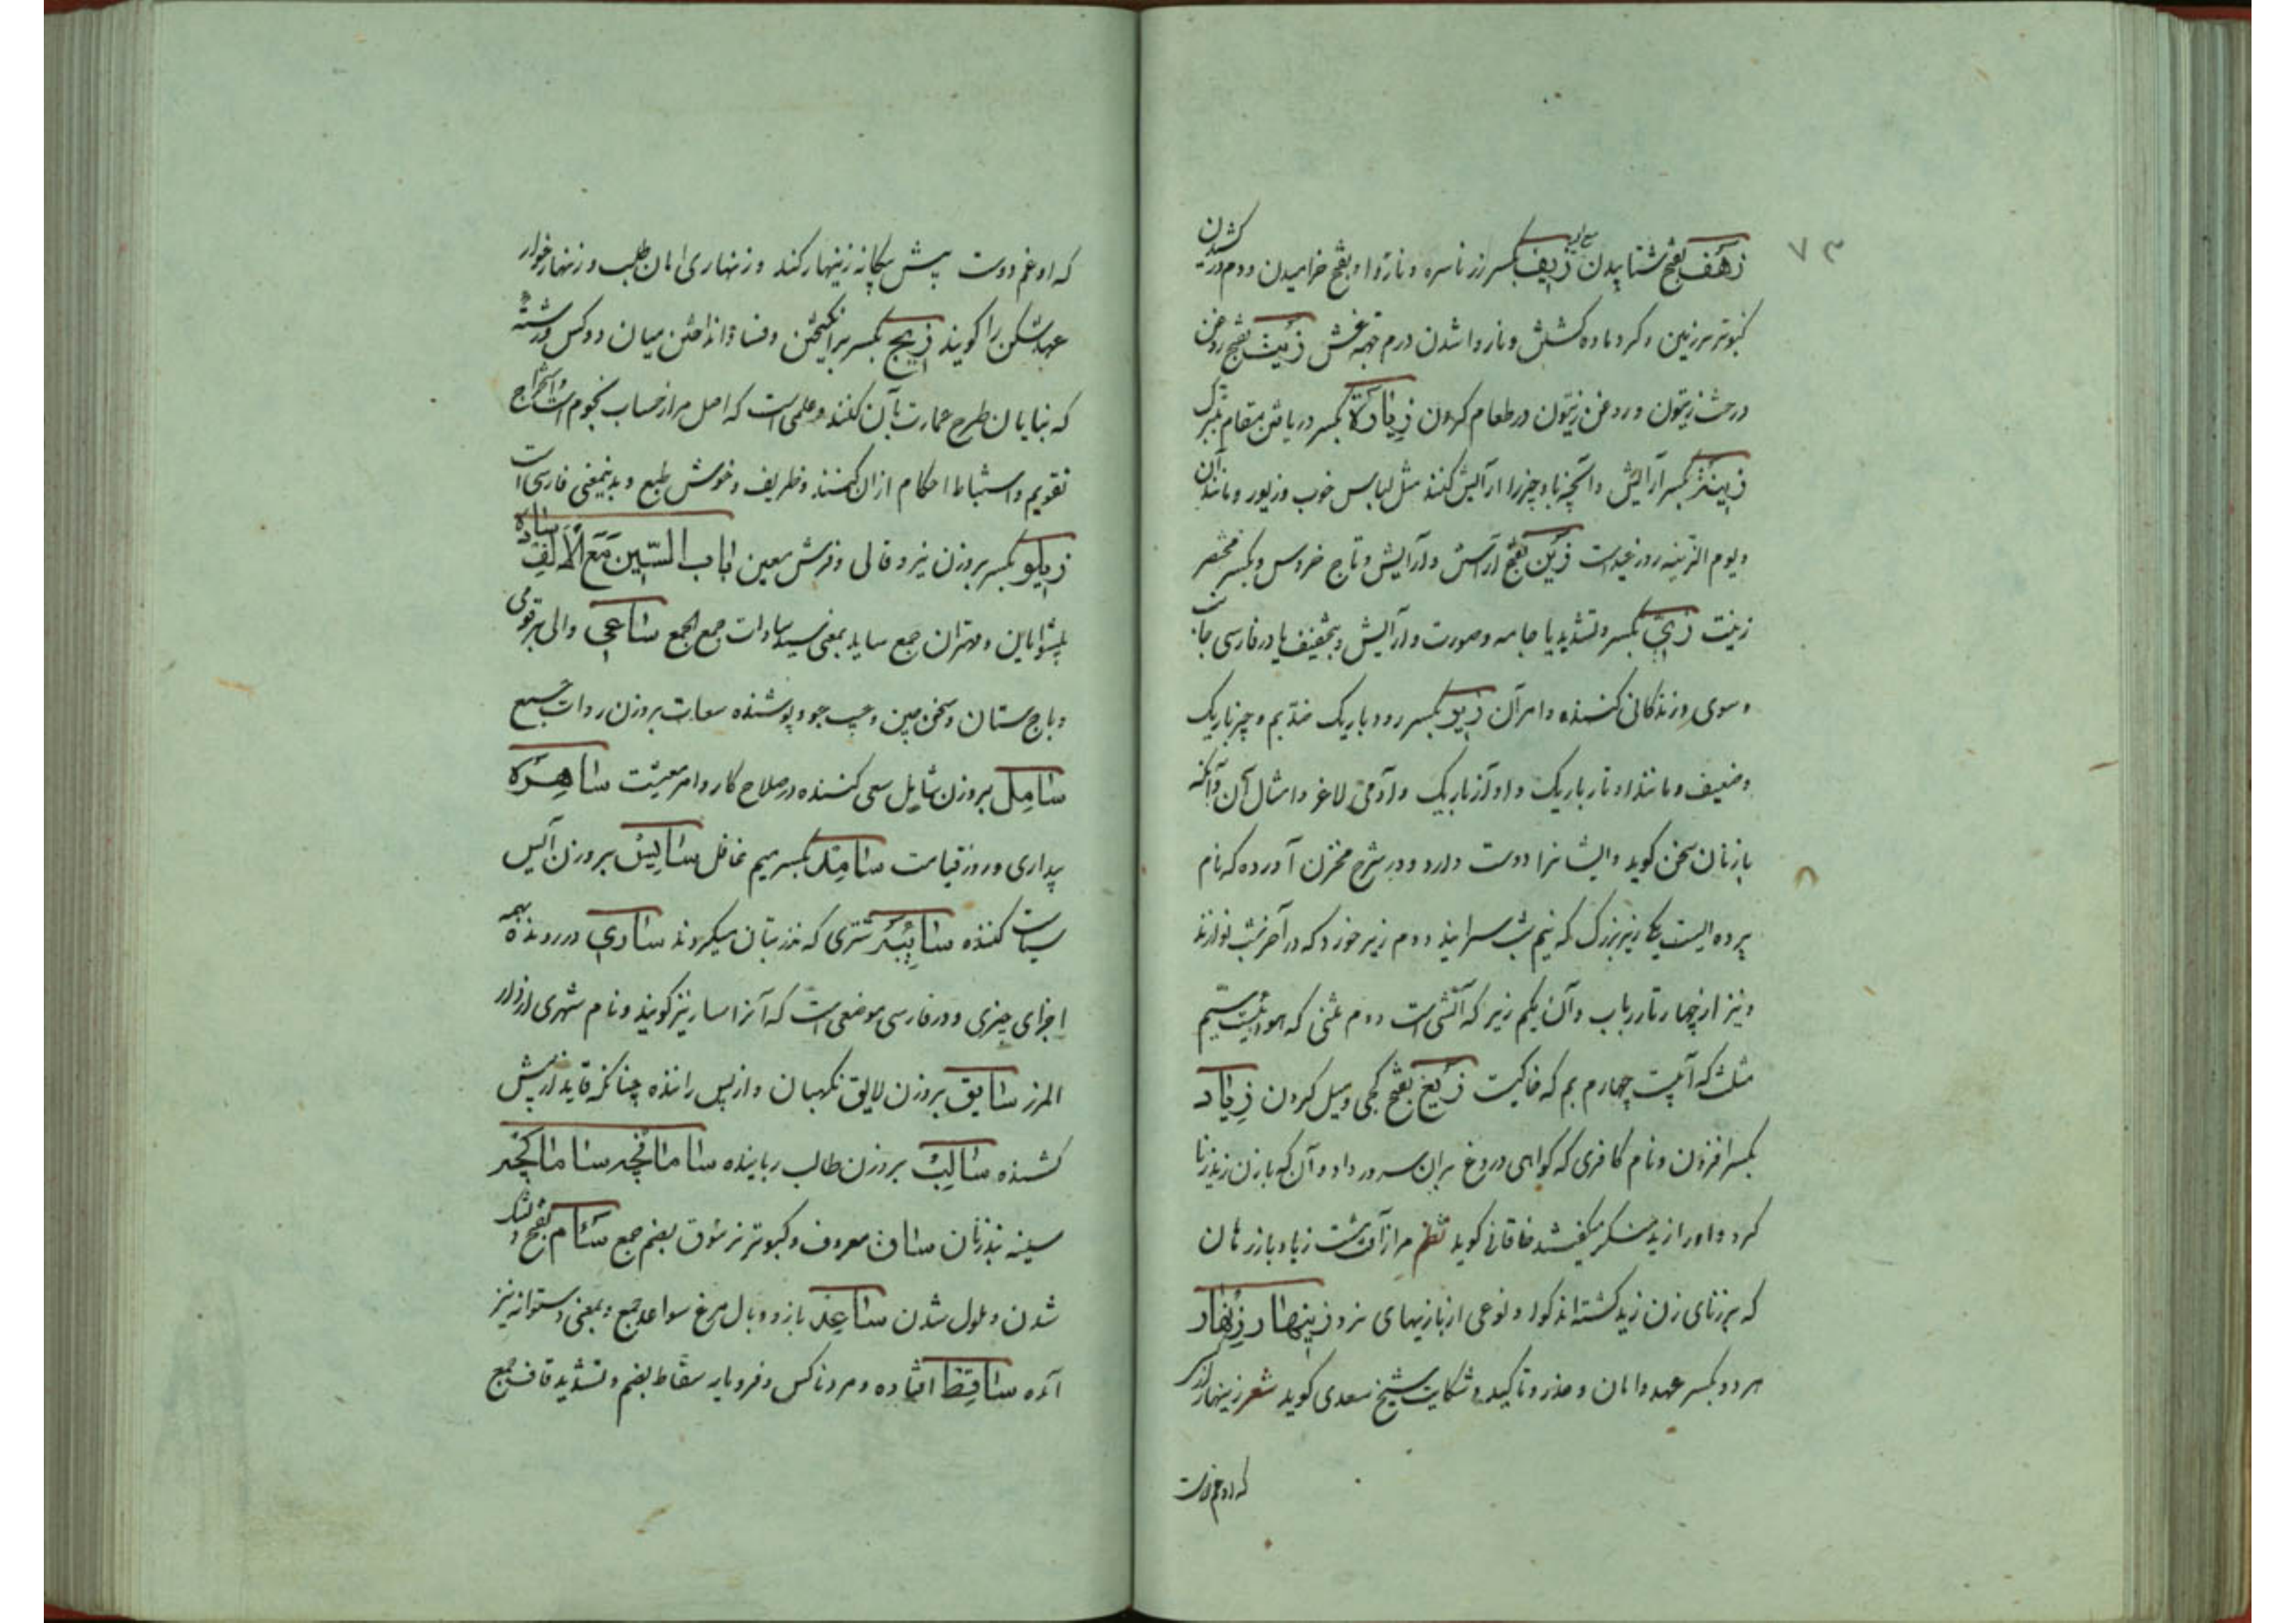 ۷۳
زهف بفتح شتابیدن زیف بکسر زر ناسره و ناروا و بفتح خرامیدن و دم در کشیدن
کبوتر بر زمین و گرد ماده گشتن و ناروا شدن درم جهة غش زیت بفتح روغن
درخت زیتون و روغن زیتون در طعام کردن زیارة بکسر دریافتن مقام متبرک
زینة بکسر آرایش و آنچه با و چیز را آرایش کنند مثل لباس خوب و زیور و مانند آن
و یوم الزینه روز عیدست زین بفتح آراستن و آرایش و تاج خروس و بکسر مختصر
زینت زی بکسر و تشدید یا جامه و صورت و آرایش و بتخفیف یا در فارسی جانب
و سوی و زندگانی کننده و امر آن زیر بکسر رود باریک ضد بم و چیز باریک
و ضعیف و مانند او تار باریک و آواز باریک و آدمی لاغر و امثال آن و آنکه
با زنان سخن گوید و ایشانرا دوست دارد و در شرح مخزن آورده که نام
پرده ایست یکی زیر بزرگ که نیم شب سرایند دوم زیر خورد که در آخر شب نوازند
و نیز از چهار تار رباب و آن یکم زیر که آتشی است دوم مثنی که هوائیست سیم
مثلث که آبیست چهارم بم که خاکیست زیغ بفتح کجی و میل کردن زیاد
بکسر افزون و نام کافری که گواهی دروغ بران سرور داد و آن که با زن زید زنا
کرد و او را زید خاقانی گوید نظم مرا از آن هشت زیاد بازر هان
که بر زنای زن زید گشته اند گوا و نوعی از بازیهای نرد زینهار زنهار
هر دو بکسر عهد و امان و حذر و تاکید و شکایت شیخ سعدی گوید شعر زینهار از کسی
که او غم دوست
که او غم دوست پیش بیگانه زینهار کند و زنهاری امان طلب و زنهار خوار
عهد شکن را گویند زیج بکسر برانگیختن و فساد انداختن میان دو کس و رشته
که بنایان طرح عمارت بآن کنند و علمی است که اصل مر از حساب نجوم است و استخراج
تقویم و استنباط احکام ازان کنند و ظریف و خوش طبع و بدینمعنی فارسی است
زیلو بکسر بروزن نیرو قالی و فرش معین باب السین مع الالف سادة
پیشوایان و مهتران جمع ساید بمعنی سید سادات جمع الجمع ساعی والی هر قومی
و باج ستان و سخن چین و عیب جو و پوشنده سعات بروزن روات جمع
سامل بروزن شامل سعی کننده در صلاح کار و امر معیشت ساهرة
بیداری و روز قیامت سامد بکسر میم غافل سایس بروزن آیس
سیاست کننده سایبه شتری که نذر بتان میکردند ساری در رونده بهمه
اجزای چیزی و در فارسی موضعی است که آنرا سار نیز گویند و نام شهری از دار
المرز سایق بروزن لایق نگهبان و از پس راننده چنانکه قاید از پیش
کشنده سالب بروزن طالب رباینده ساماخچه ساماکچه
سینه بند زنان ساق معروف و کبوتر نر سوق بضم جمع سئام بفتح و
شدن و ملول شدن ساعد بازو و بال مرغ سواعد جمع و بمعنی دستوانه نیز
آمده ساقط افتاده و مرد ناکس و فرومایه سقاط بضم و تشدید قاف جمع